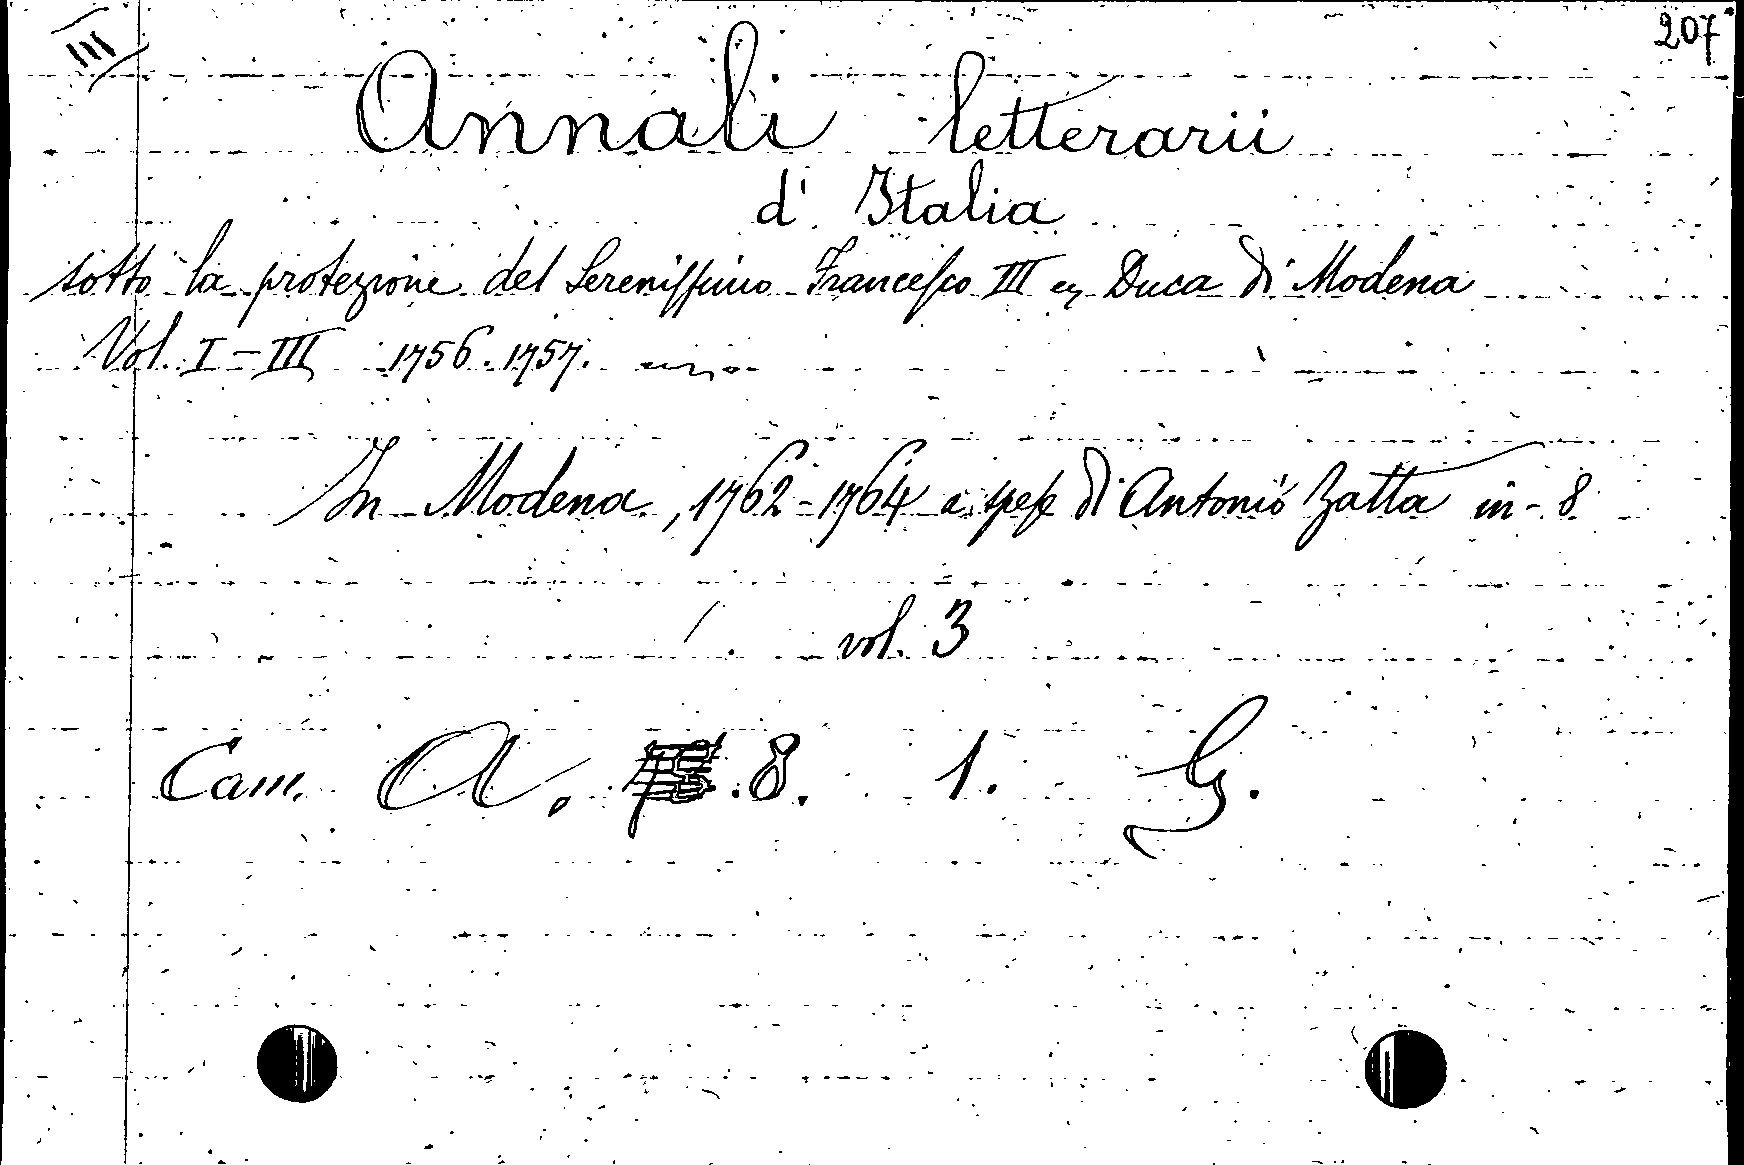 III
207
Annali letterarii
d'Italia
sotto la protezione del Sereniſſimo Franceſco III Duca di Modena
Vol. I-III 1756.1757.
In Modena, 1762-1764 a speſe di Antonio Zatta in-8
vol. 3
Cam. A. 8. 1. G.